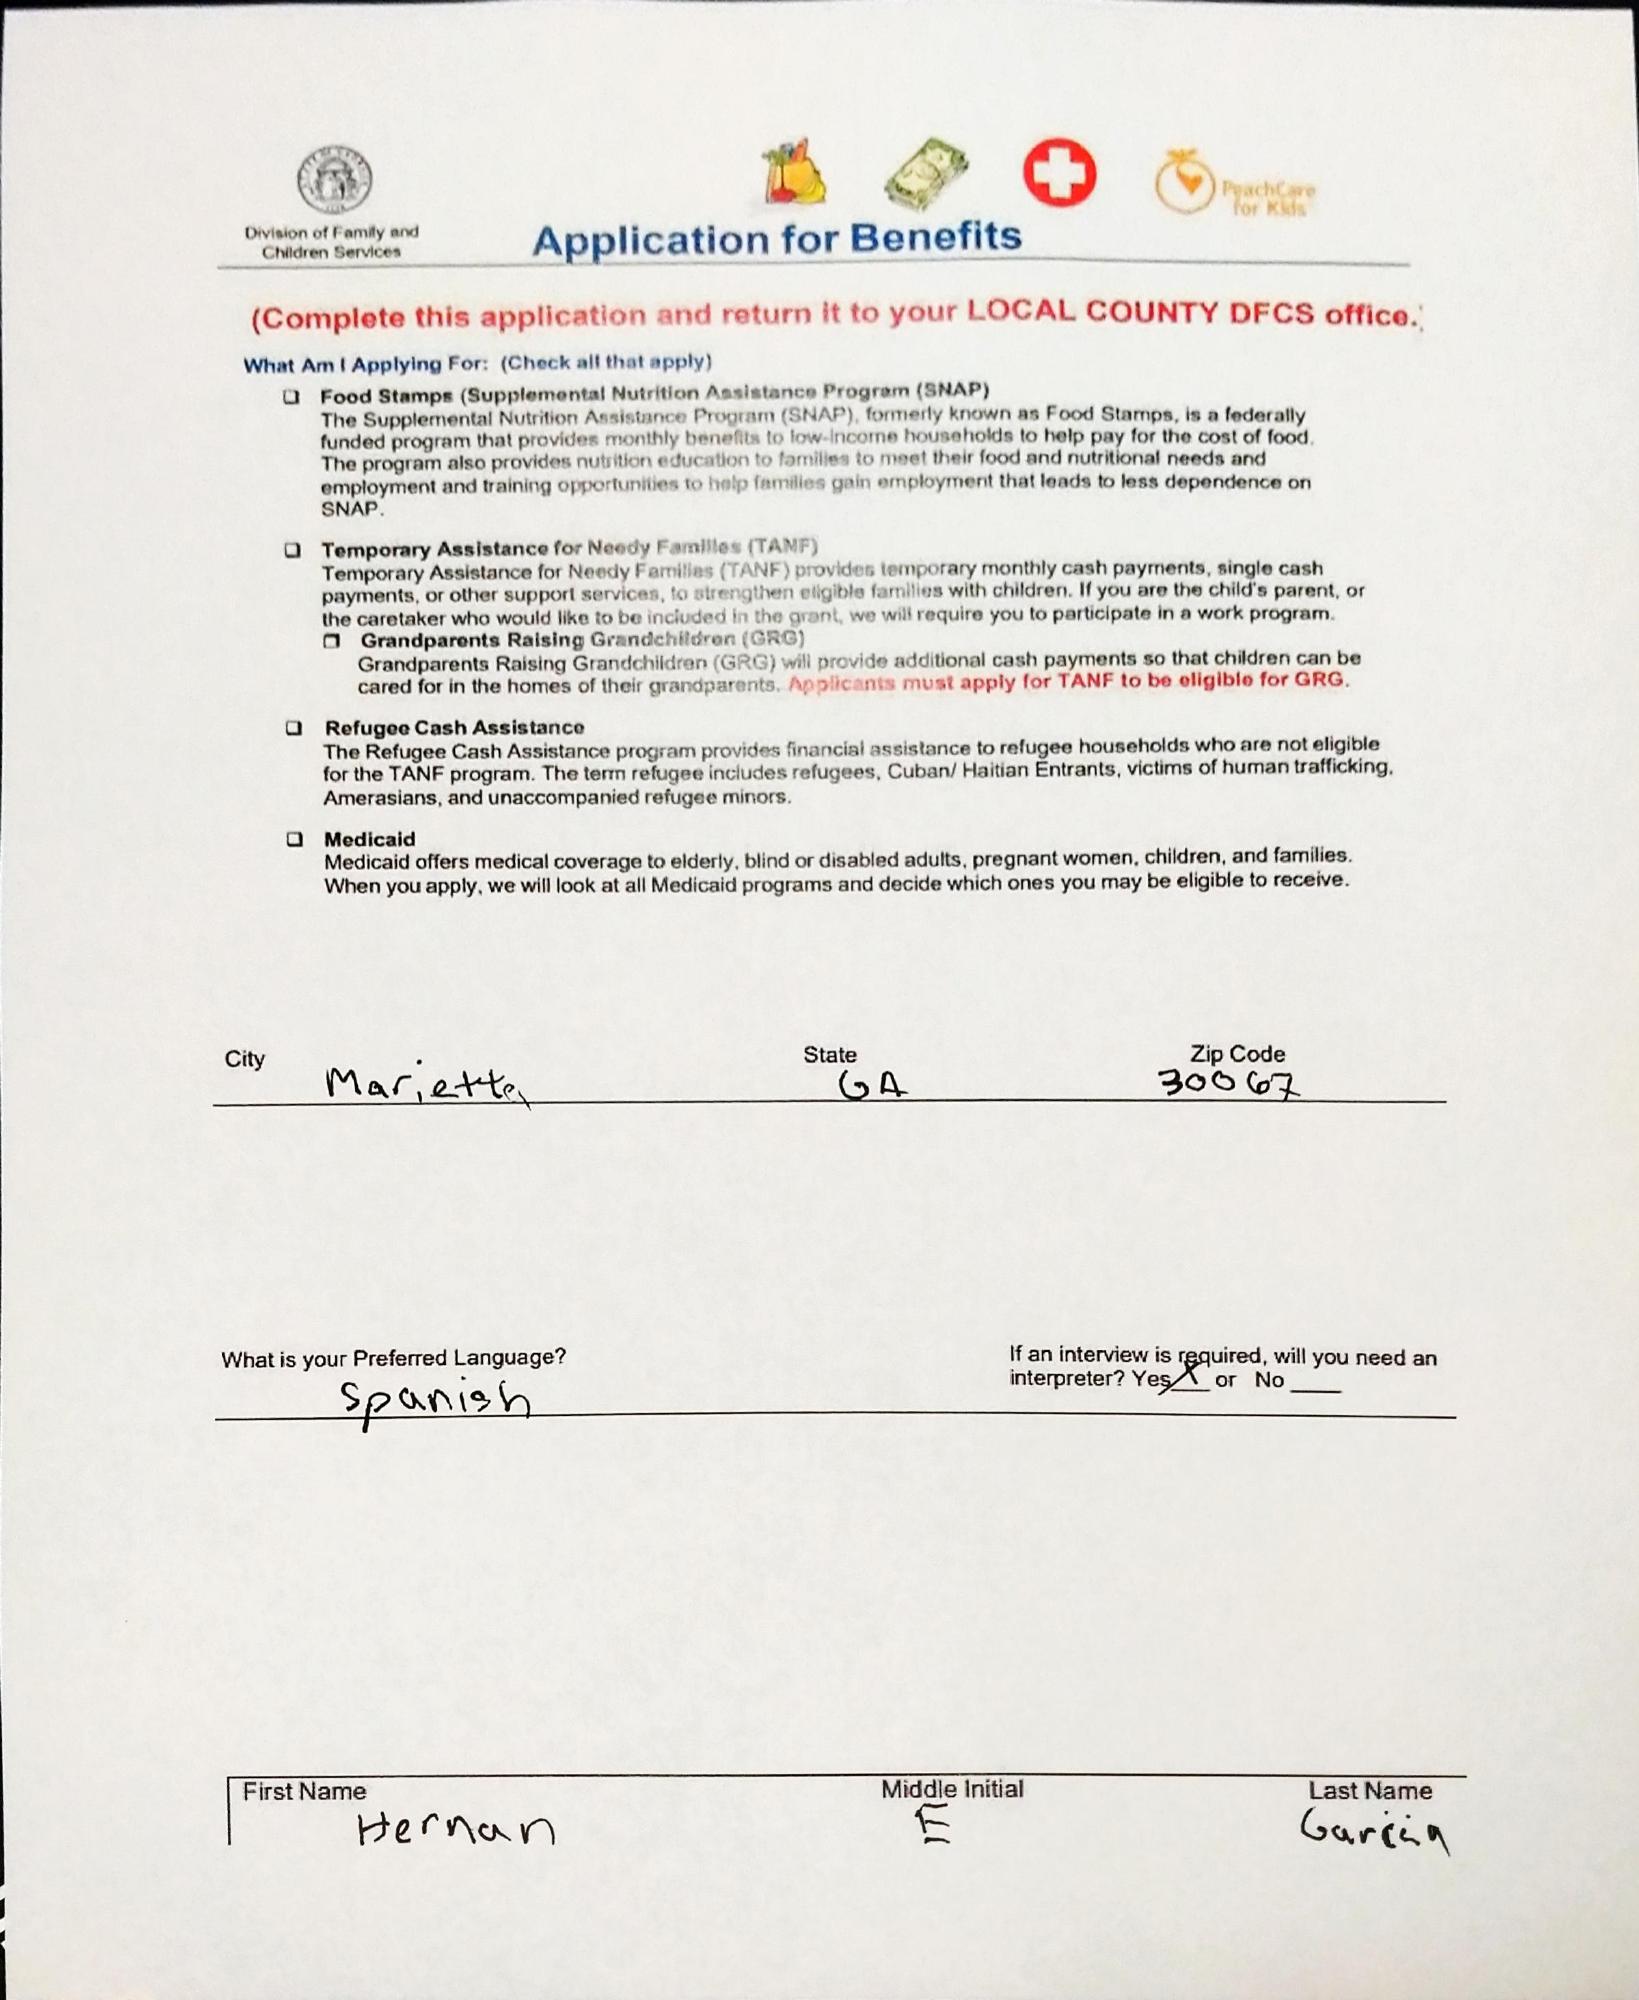 PeachCare
for Kids
Division of Family and
Children Services
Application for Benefits
(Complete this application and return it to your LOCAL COUNTY DFCS office.)
What Am I Applying For: (Check all that apply)
❑ Food Stamps (Supplemental Nutrition Assistance Program (SNAP)
The Supplemental Nutrition Assistance Program (SNAP), formerly known as Food Stamps, is a federally
funded program that provides monthly benefits to low-income households to help pay for the cost of food.
The program also provides nutrition education to families to meet their food and nutritional needs and
employment and training opportunities to help families gain employment that leads to less dependence on
SNAP.
❑ Temporary Assistance for Needy Families (TANF)
Temporary Assistance for Needy Families (TANF) provides temporary monthly cash payments, single cash
payments, or other support services, to strengthen eligible families with children. If you are the child's parent, or
the caretaker who would like to be included in the grant, we will require you to participate in a work program.
❑ Grandparents Raising Grandchildren (GRG)
Grandparents Raising Grandchildren (GRG) will provide additional cash payments so that children can be
cared for in the homes of their grandparents. Applicants must apply for TANF to be eligible for GRG.
❑ Refugee Cash Assistance
The Refugee Cash Assistance program provides financial assistance to refugee households who are not eligible
for the TANF program. The term refugee includes refugees, Cuban/ Haitian Entrants, victims of human trafficking,
Amerasians, and unaccompanied refugee minors.
❑ Medicaid
Medicaid offers medical coverage to elderly, blind or disabled adults, pregnant women, children, and families.
When you apply, we will look at all Medicaid programs and decide which ones you may be eligible to receive.
City State Zip Code
Marietta GA 30067
What is your Preferred Language? If an interview is required, will you need an
interpreter? Yes X or No ___
Spanish
First Name Middle Initial Last Name
Hernan E Garcia